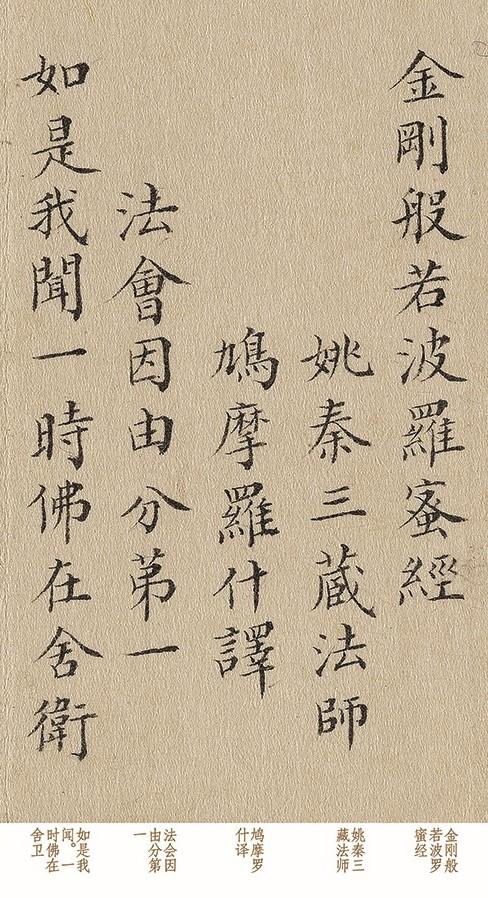 金剛般若波羅蜜經
姚秦三藏法師
鳩摩羅什譯
法會因由分第一
如是我聞一時佛在舍衛
金刚般
若波罗
蜜经
姚秦三
藏法师
鸠摩罗
什译
法会因
由分第
一
如是我
闻。一
时佛在
舍卫